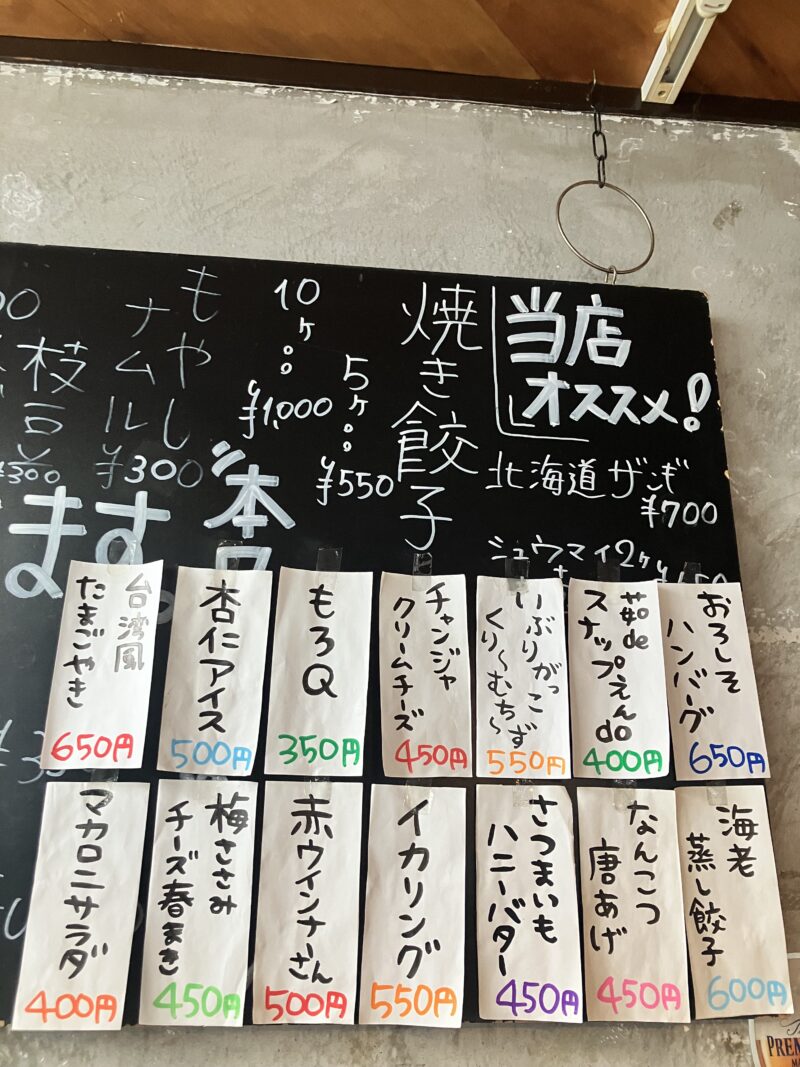 当店
オススメ!
北海道ザンギ
¥700
シュウマイ2ヶ
焼き餃子
5ヶ。。
¥550
10ヶ。。
¥1,000
もやし
ナムル
¥300
枝豆
¥300
ます。
おろしそ
ハンバーグ
650円
茹de
スナップえんdo
400円
いぶりがっこ
くり〜むち〜ず
550円
チャンジャ
クリームチーズ
450円
もろQ
350円
杏仁アイス
500円
台湾風
たまごやき
650円
海老
蒸し餃子
600円
なんこつ
唐あげ
450円
さつまいも
ハニーバター
450円
イカリング
550円
赤ウインナーさん
500円
梅ささみ
チーズ春まき
450円
マカロニサラダ
400円